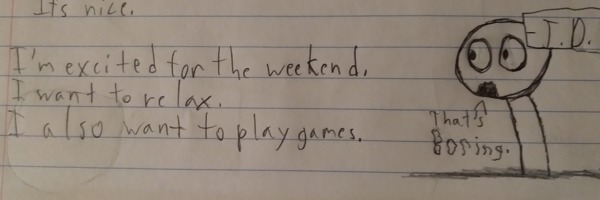 Its nice.
-J.D.
I'm excited for the weekend.
I want to relax.
I also want to play games.
That's
Boring.